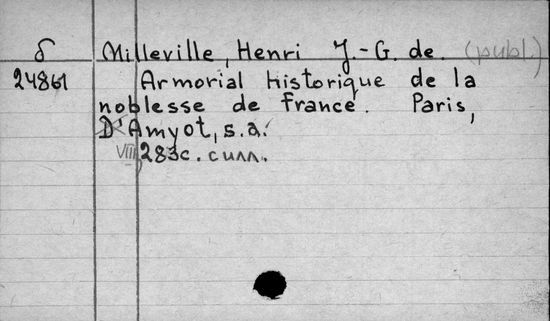 δ Milleville, Henri J.-G. de. (publ.)
24861 Armorial Historique de la
noblesse de France. Paris,
D'Amyot, s.a.
VIII, 283c. силл.